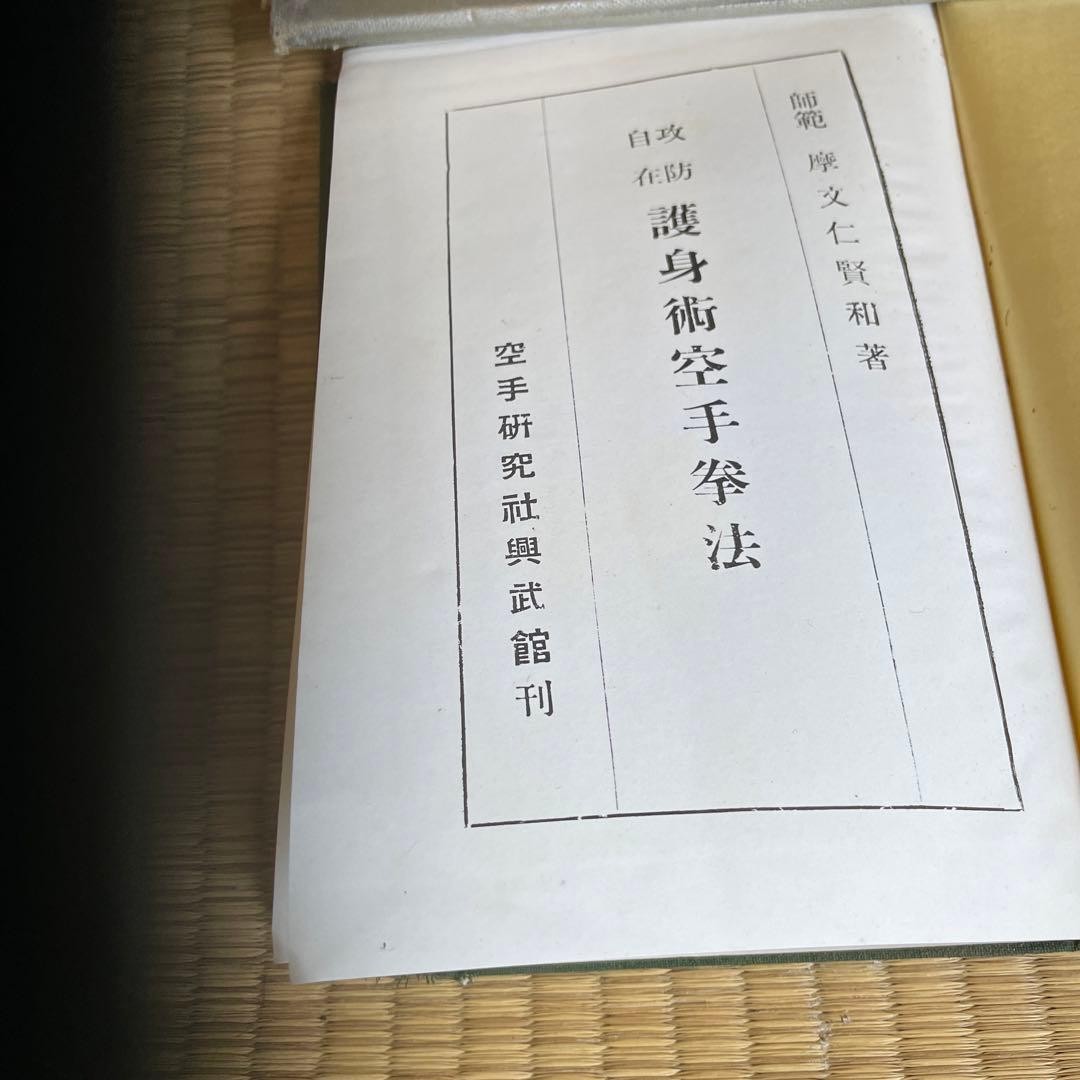 師範 摩文仁賢和著
攻防
自在
護身術空手拳法
空手研究社興武館刊